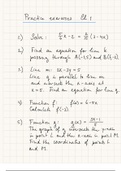 Practice exercises Ch 1
1) Solve: 3/5 x - 2 = 2/10 (3 - 4x)
2) Find an equation for line k
passing through A(-1,5) and B(3,-2)
3) Line m: 2x - 3y = 5
Line q is parallel to line m
and intersects the x-axis at
x = 5. Find an equation for line q
4) Function f: f(x) = 6 - 4x
Calculate f(-2)
5) Function g:
The graph of g intersects the y-axis
in point L and the x-axis in point M.
Find the coordinates of points L
and M.